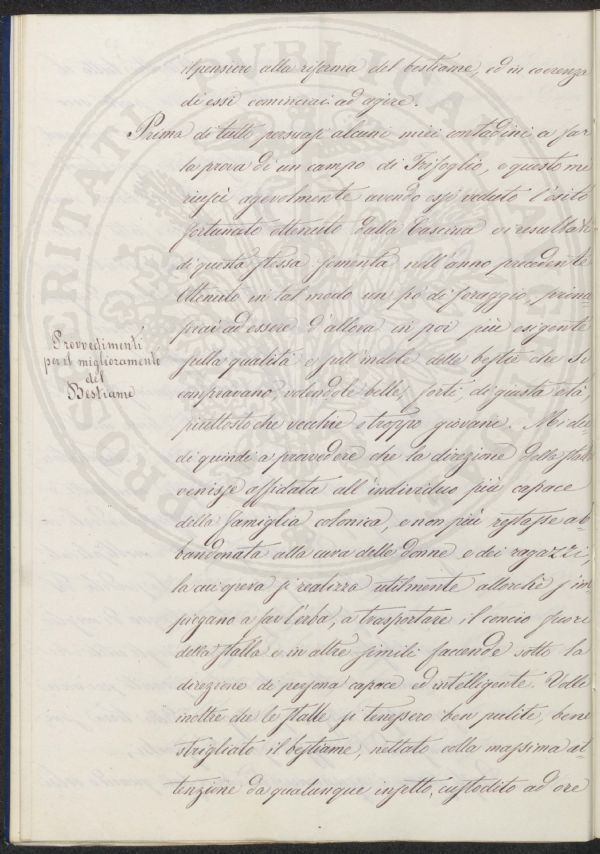 il pensiero alla riforma del bestiame, ed in coerenza
di essi cominciai ad agire.
Prima di tutto persuasi alcuni miei contadini a far
la prova di un campo di Trifoglio, e questo mi
riuscì agevolmente avendo essi veduto l'esito
fortunato ottenuto dalla Cascina ei resultati
di questa stessa sementa nell'anno precedente.
Ottenuto in tal modo un pò di foraggio, prima
ad essere d'allora in poi più esigente
sulla qualità e sull'indole delle bestie che si
compravano, volendole belle, forti, di giusta età
piuttosto che vecchie o troppo giovane. Mi die
di quindi a provvedere che la direzione della stalla
venisse affidata all'individuo più capace
della famiglia colonica, e non più restasse ab=
bandonata alla cura delle donne e dei ragazzi,
la cui opera si realizza utilmente allorchè s'im
piegano a far l'erba, a trasportare il concio fuori
della stalla e in altre simili faccende sotto la
direzione di persona capace ed intelligente. Volli
inoltre che le stalle si tenessero ben pulite, bene
strigliato il bestiame, nettato colla massima at=
tenzione da qualunque insetto, custodito ad ore
Provvedimenti
per il miglioramento
del
Bestiame
PROSPERITATI PUBLICAE AUGENDAE